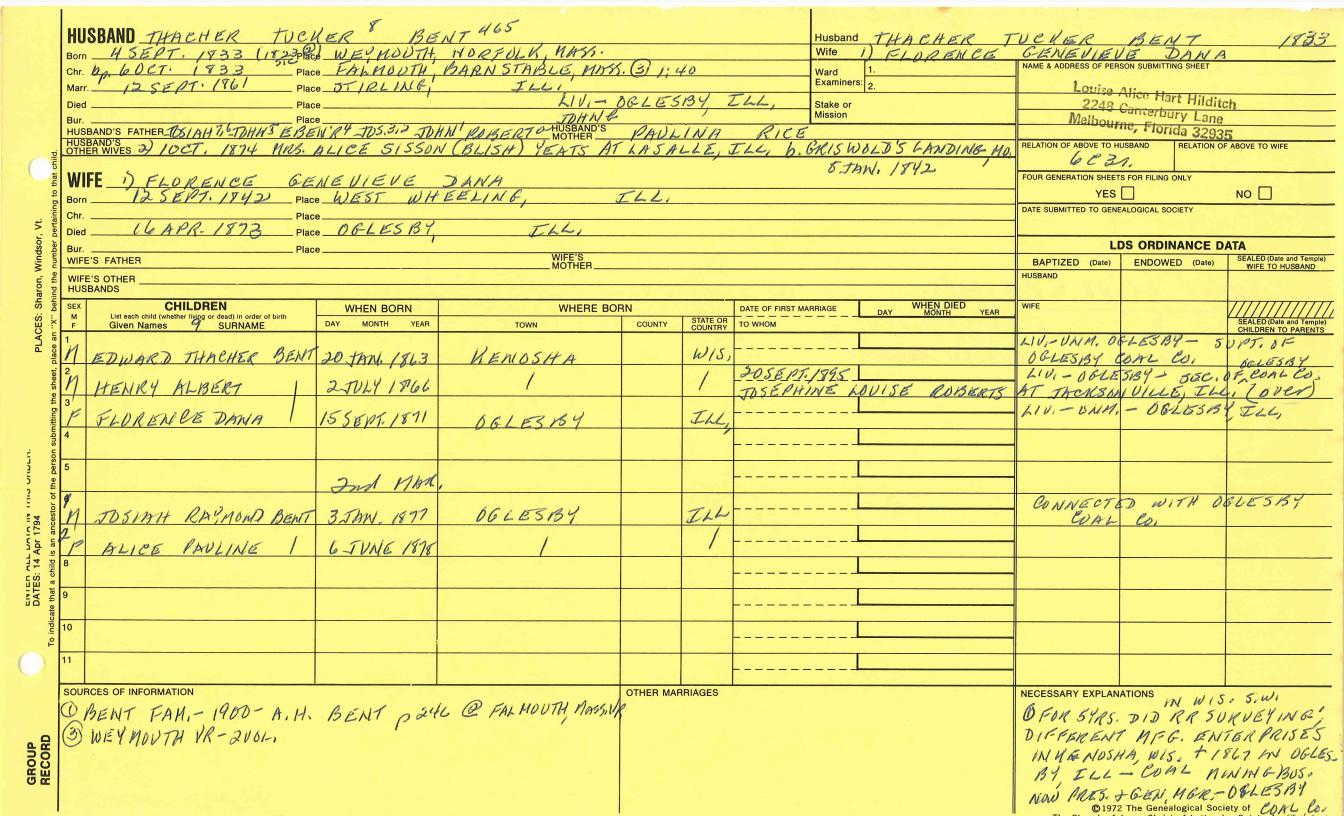 HUSBAND THACHER TUCKER 8 BENT 465
Born 4 SEPT. 1833 Place WEYMOUTH, NORFOLK, MASS.
Chr. bp. 6 OCT. 1833 Place FALMOUTH, BARNSTABLE, MASS. (3) 1:40
Marr. 12 SEPT. 1861 Place STIRLING, ILL.
Died Place LIV.- OGLESBY, ILL,
Bur. Place
HUSBAND'S FATHER JOSIAH JOHN5 EBEN'R4 JOS.3,2 JOHN1 ROBERT0 HUSBAND'S MOTHER PAULINA RICE
HUSBAND'S OTHER WIVES 2) 1 OCT. 1874 MRS. ALICE SISSON (BLISH) YEATS AT LASALLE, ILL, b. GRISWOLD'S LANDING, MO.
5 JAN. 1842
WIFE 1) FLORENCE GENEVIEVE DANA
Born 12 SEPT. 1842 Place WEST WHEELING, ILL.
Chr. Place
Died 16 APR. 1873 Place OGLESBY, ILL,
Bur. Place
WIFE'S FATHER WIFE'S MOTHER
WIFE'S OTHER HUSBANDS
Husband THACHER TUCKER BENT 1833
Wife 1) FLORENCE GENEVIEVE DANA
Ward Examiners: 1.
2.
Stake or Mission
NAME & ADDRESS OF PERSON SUBMITTING SHEET
Louise Alice Hart Hilditch
2248 Canterbury Lane
Melbourne, Florida 32935
RELATION OF ABOVE TO HUSBAND RELATION OF ABOVE TO WIFE
6C3r.
FOUR GENERATION SHEETS FOR FILING ONLY
YES NO
DATE SUBMITTED TO GENEALOGICAL SOCIETY
LDS ORDINANCE DATA
BAPTIZED (Date) ENDOWED (Date) SEALED (Date and Temple) WIFE TO HUSBAND
HUSBAND
WIFE
SEALED (Date and Temple) CHILDREN TO PARENTS
SEX M F CHILDREN WHEN BORN WHERE BORN DATE OF FIRST MARRIAGE WHEN DIED
List each child (whether living or dead) in order of birth
Given Names 9 SURNAME DAY MONTH YEAR TOWN COUNTY STATE OR COUNTRY TO WHOM DAY MONTH YEAR
1 M EDWARD THACHER BENT 20 JAN. 1863 KENOSHA WIS, LIV.-UNM. OGLESBY- SUPT. OF OGLESBY COAL CO.
2 M HENRY ALBERT 2 JULY 1866 20 SEPT. 1895 LIV.- OGLESBY- SEC. OF OGLESBY COAL CO.
JOSEPHINE LOUISE ROBERTS AT JACKSONVILLE, ILL. (over)
3 F FLORENCE DANA 15 SEPT. 1871 OGLESBY ILL, LIV.- UNM. - OGLESBY, ILL,
4
5
2nd MAR.
1 M JOSIAH RAYMOND BENT 3 JAN. 1877 OGLESBY ILL CONNECTED WITH OGLESBY COAL CO.
2 F ALICE PAULINE 6 JUNE 1878
8
9
10
11
SOURCES OF INFORMATION
(1) BENT FAM.- 1900- A.H. BENT p 246 @ FALMOUTH, MASS. VR
(3) WEYMOUTH VR-2VOL.
OTHER MARRIAGES
NECESSARY EXPLANATIONS IN WIS. S.W.
(1) FOR 5YRS. DID RR SURVEYING;
DIFFERENT MFG. ENTERPRISES
IN KENOSHA, WIS. + 1867 IN OGLES-
BY, ILL - COAL MINING BUS.
NOW PRES. + GEN. MGR.- OGLESBY COAL CO.
©1972 The Genealogical Society of
PLACES: Sharon, Windsor, Vt.
ENTER ALL DATA IN THIS ORDER:
DATES: 14 Apr 1794
To indicate that a child is an ancestor of the person submitting the sheet, place an "X" behind the number pertaining to that child.
GROUP RECORD